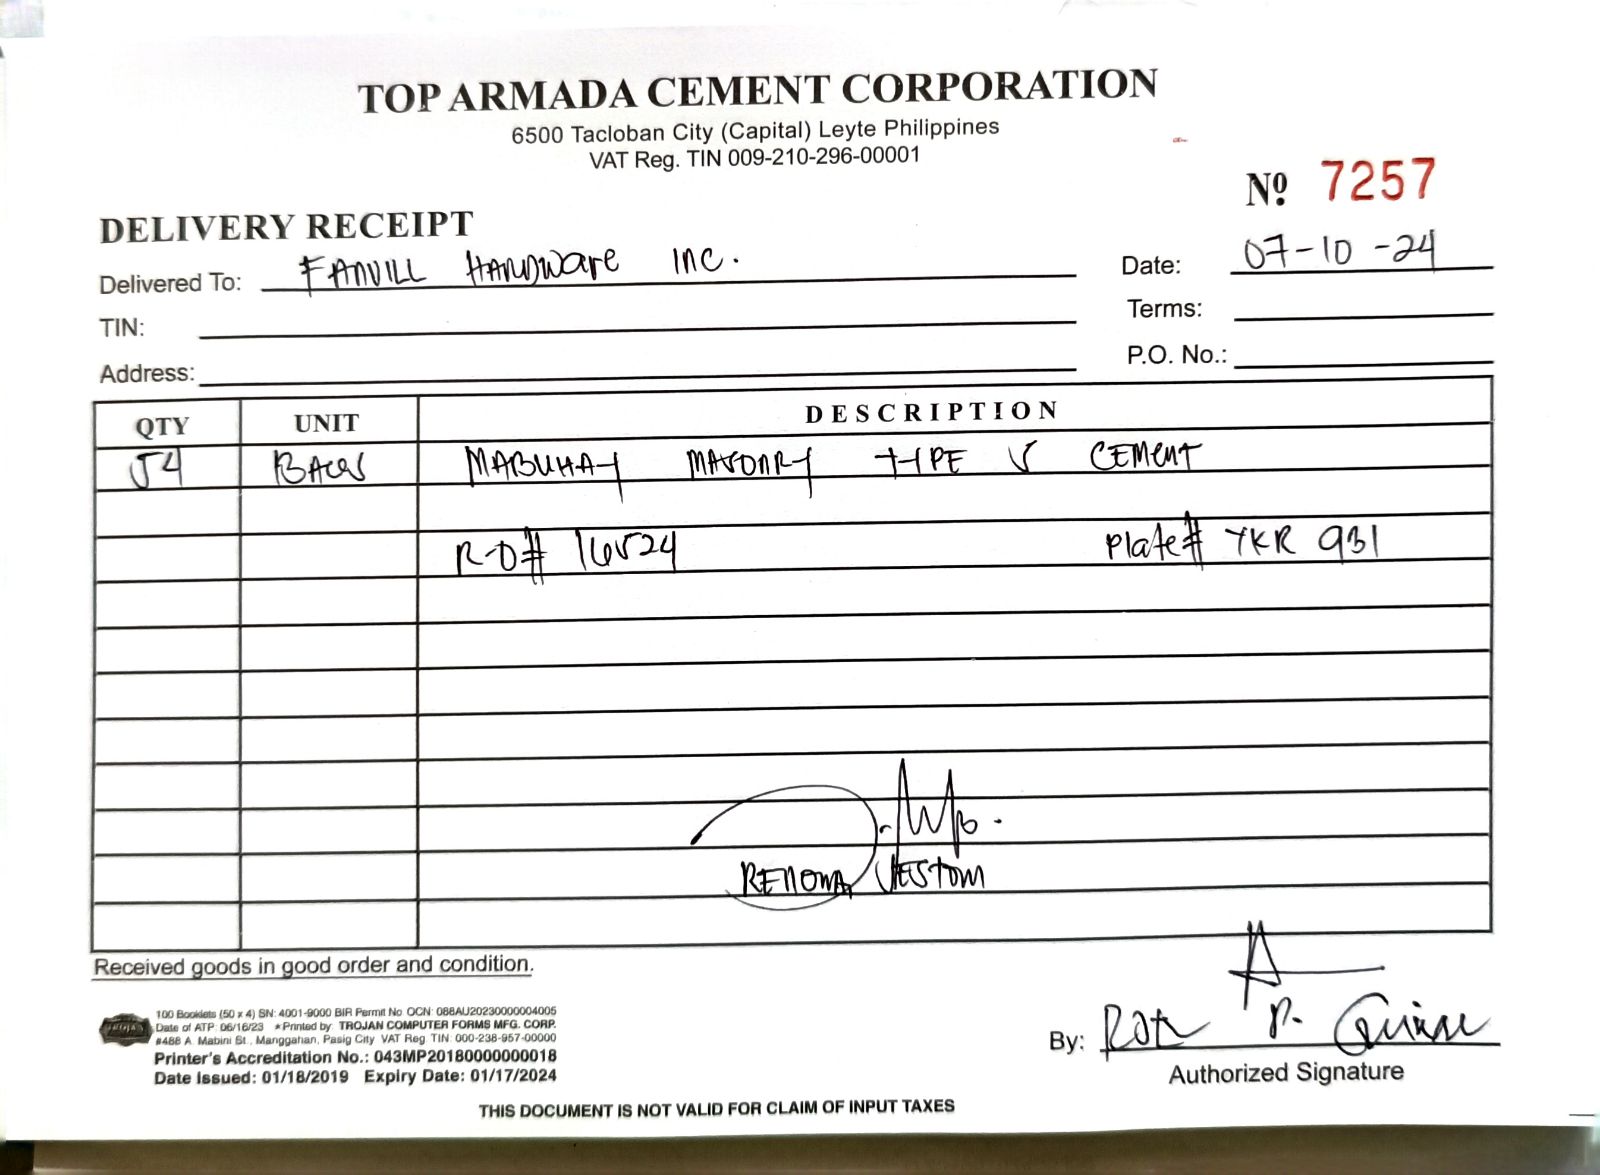 TOP ARMADA CEMENT CORPORATION
6500 Tacloban City (Capital) Leyte Philippines
VAT Reg. TIN 009-210-296-00001
Nº 7257
DELIVERY RECEIPT
Delivered To: FANVILL HARDWARE INC.
Date: 07-10-24
TIN:
Terms:
Address:
P.O. No.:
QTY UNIT DESCRIPTION
54 BAGS MABUHAY MASONRY TYPE S CEMENT
R-O# 16524 Plate# YKR 931
Received goods in good order and condition.
100 Booklets (50 x 4) SN: 4001-9000 BIR Permit No OCN: 088AU20230000004005
Date of ATP: 06/16/23 *Printed by: TROJAN COMPUTER FORMS MFG. CORP.
#488 A. Mabini St., Manggahan, Pasig City VAT Reg. TIN: 000-238-957-00000
Printer's Accreditation No.: 043MP20180000000018
Date Issued: 01/18/2019 Expiry Date: 01/17/2024
By:
Authorized Signature
THIS DOCUMENT IS NOT VALID FOR CLAIM OF INPUT TAXES